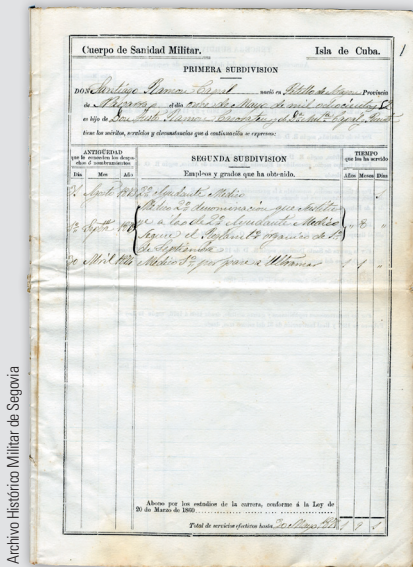 1
Cuerpo de Sanidad Militar. Isla de Cuba.
PRIMERA SUBDIVISION
DON Santiago Ramon Cajal nació en Petilla de Provincia
de Navarra el dia de Mayo de mil ochocientos
es hijo de Don Justo Ramon y de Dª Cajal
tiene los méritos, servicios y circunstancias que á continuacion se expresan:
ANTIGÜEDAD
que le conceden los despachos ó nombramientos
SEGUNDA SUBDIVISION
TIEMPO
que los ha servido
Dia Mes Año Empleos y grados que ha obtenido. Años Meses Dias
31 Agosto 2º Ayudante Médico
Médico 2º denominacion que
á la de 2º Ayudante Médico
Septbre segun el Reglamto organico de 1º
de Septiembre
30 Abril Médico 1º por pase á Ultramar
Abono por los estudios de la carrera, conforme á la Ley de
20 de Marzo de 1860
Total de servicios efectivos hasta Mayo 1 9 1
Archivo Histórico Militar de Segovia